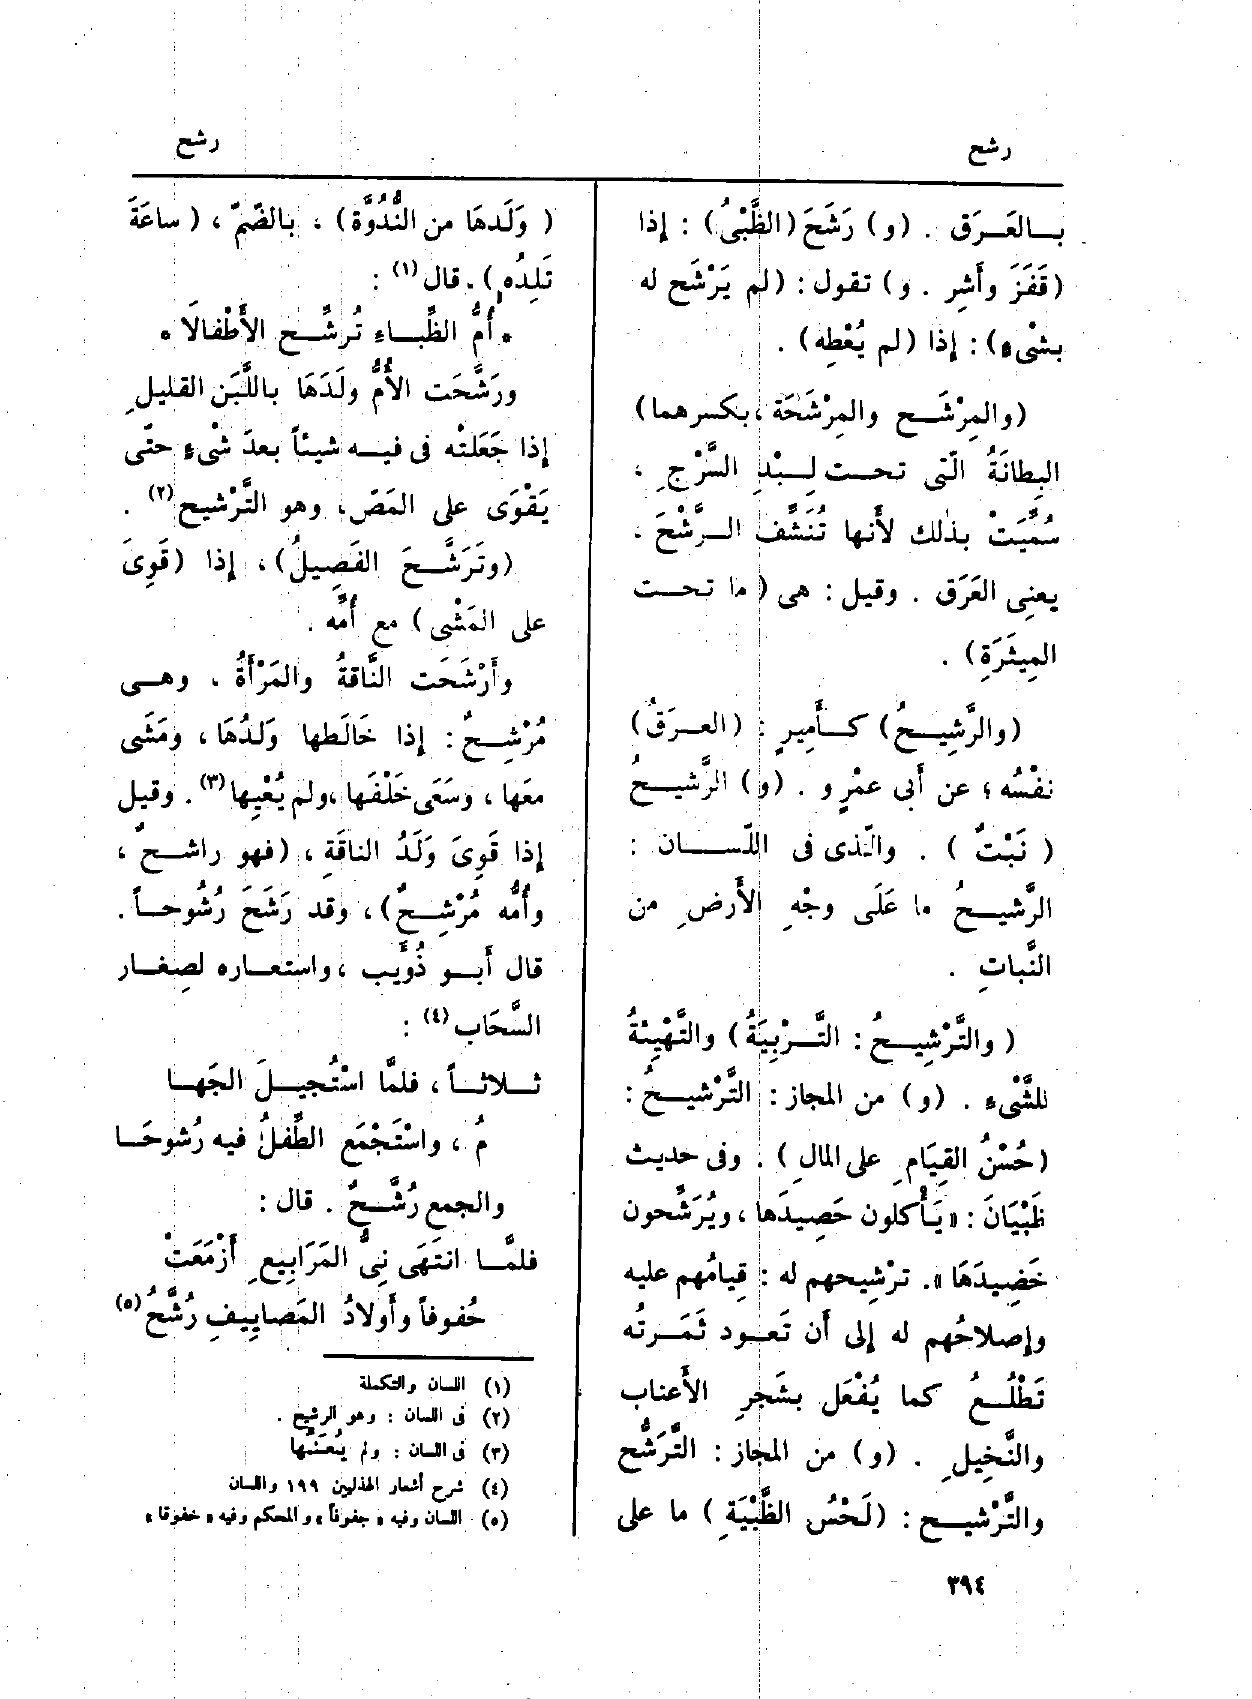 رشح
رشح
بـالعَـرَق . (و) رَشَحَ (الظَّبْىُ) : إذا
(قَفَزَ وأَشِرَ . و) تقول : (لم يَرْشَح له
بشىْءٍ) : إذا (لم يُعْطِه) .
(والمِرْشَـح والمِرْشَحَة ،بكسرهما)
البِطانَةُ الّتى تحـت لِـبْدِ السَّرْجِ ،
سُمِّيَتْ بذٰلك لأَنها تُنَشِّف الـرَّشْحَ .
يعنى العَرَق . وقيل : هى ( ما تحـت
المِيثَرَةِ) .
(والرَّشِيـحُ) كـأَمِيرٍ : (العـرَقُ)
نفْسُه ؛ عن أَبى عمْرٍو . (و) الرَّشيـحُ
( نَبْتٌ ) . والَّذى فى اللّسـان :
الرَّشيـحُ ما عَلَى وجْهِ الأَرضِ من
النَّباتِ .
( والتَّرْشِيـحُ : التَّـرْبِيَةُ) والتَّهْيِئةُ
للشَّىْءِ . (و) من المجاز : التَّرْشيـحُ :
(حُسْنُ القِيَامِ على المالِ) . وفى حديث
ظَبْيَانَ : «يَأْكلون حَصِيدَها ، ويُرَشِّحون
خَضِيدَهَا» . ترْشِيحهم له : قِيامُهم عليه
وإصلاحُهم له إلى أَن تَعـود ثَمَـرتُه
تَطْلُـعُ كما يُفْعَل بشَجرِ الأَعناب
والنَّخِيلِ . (و) من المجاز : التَّرَشُّح
والتَّرْشيـح : (لَحْسُ الظَّبْيَةِ ) ما على
( وَلَدهَا من النُّدُوَّة) ، بالضّمّ ، (ساعَةَ
تَلِدُه) . قال (١) :
* أُمُّ الظِّبـاءِ تُرشِّـح الأَطْفالَا *
ورَشَّحَت الأُمُّ ولَدَهَا باللَّبَن القليلِ
إذا جَعَلتْه فى فيـه شيئاً بعدَ شْىءٍ حتّى
يَقْوَى على المَصّ، وهو التَّرْشيح (٢) .
(وتَرَشَّـحَ الفَصِيلُ) ، إذا (قَوِىَ
على المَشْىِ) مع أُمِّه .
وأَرْشَحَت النَّاقةُ والمَرْأَةُ ، وهـى
مُرْشِـحٌ : إذا خَالَطها وَلَدُهَا ، ومَشَى
معَها ، وسَعَى خَلْفَها ،ولم يُعْيِها (٣) . وقيل
إذا قَوِىَ وَلَدُ الناقَةِ ، (فهو راشـحٌ ،
وأُمُّه مُرْشِـحٌ) ، وقد رَشَحَ رُشُوحـاً .
قال أَبـو ذُؤَيب ،واستعـاره لصِغـار
السَّحَاب (٤) :
ثـلاثـاً ، فلمَّا اسْتُجِيـلَ الجَهـا
مُ ، واسْتَجْمَع الطِّفلُ فيه رُشُوحَـا
والجمع رُشَّـحٌ . قال :
فلمَّـا انتَهَى نِىُّ المَرَابِيعِ أَزْمَعَتْ
حُفوفاً وأَولادُ المَصايِيفِ رُشَّحُ (٥)
(١) اللسان والتكملة
(٢) فى اللسان : وهو الرشيح .
(٣) فى اللسان : ولم يُعَنِّها
(٤) شرح أشعار الهذليين ١٩٩ واللسان
(٥) اللسان وفيه « جفوفاً » والمحكم وفيه « خفوفا »
٣٩٤